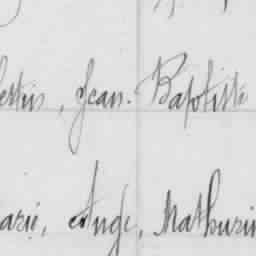 Jean. Baptiste
arie, Ange, Mathurin